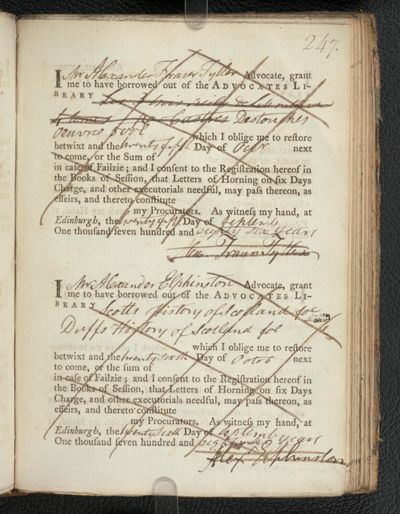 247.
I Mr Alexander Fraser Tytler Advocate, grant
me to have borrowed out of the ADVOCATES LI-
BRARY
Destouches
Oeuvres
which I oblige me to restore
betwixt and the twenty fifth Day of Octr. next
to come, or the Sum of
in case of Failzie; and I consent to the Registration hereof in
the Books of Session, that Letters of Horning on six Days
Charge, and other executorials needful, may pass thereon, as
effeirs, and thereto constitute
my Procurators. As witness my hand, at
Edinburgh, the twenty fifth Day of Septemb
One thousand seven hundred and eighty six years
Alex Fraser Tytler
I Mr Alexander Elphinston Advocate, grant
me to have borrowed out of the ADVOCATES LI-
BRARY Scotts History of Scotland foe
Duffs History of Scotland foe
which I oblige me to restore
betwixt and the twenty sixth Day of Octob next
to come, or the sum of
in case of Failzie; and I consent to the Registration hereof in
the Books of Session, that Letters of Horning on six Days
Charge, and other executorials needful, may pass thereon, as
effeirs, and thereto constitute
my Procurators. As witness my hand, at
Edinburgh, the twenty sixth Day of Septemb
One thousand seven hundred and eighty six years
Alex Elphinston